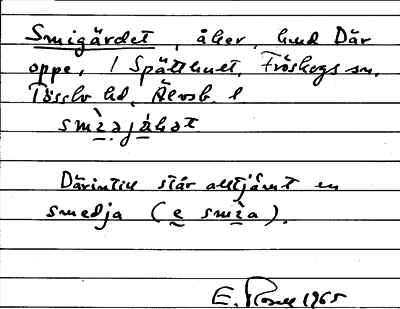 Smigärdet, åker, hmd Där
oppe, 1 Spätthult, Fröskogs sn,
Tössbo hd, Älvsb. l
smìəjáḥət
Därintill står alltjämt en
smedja (e smìa).
E. Rosell 1965